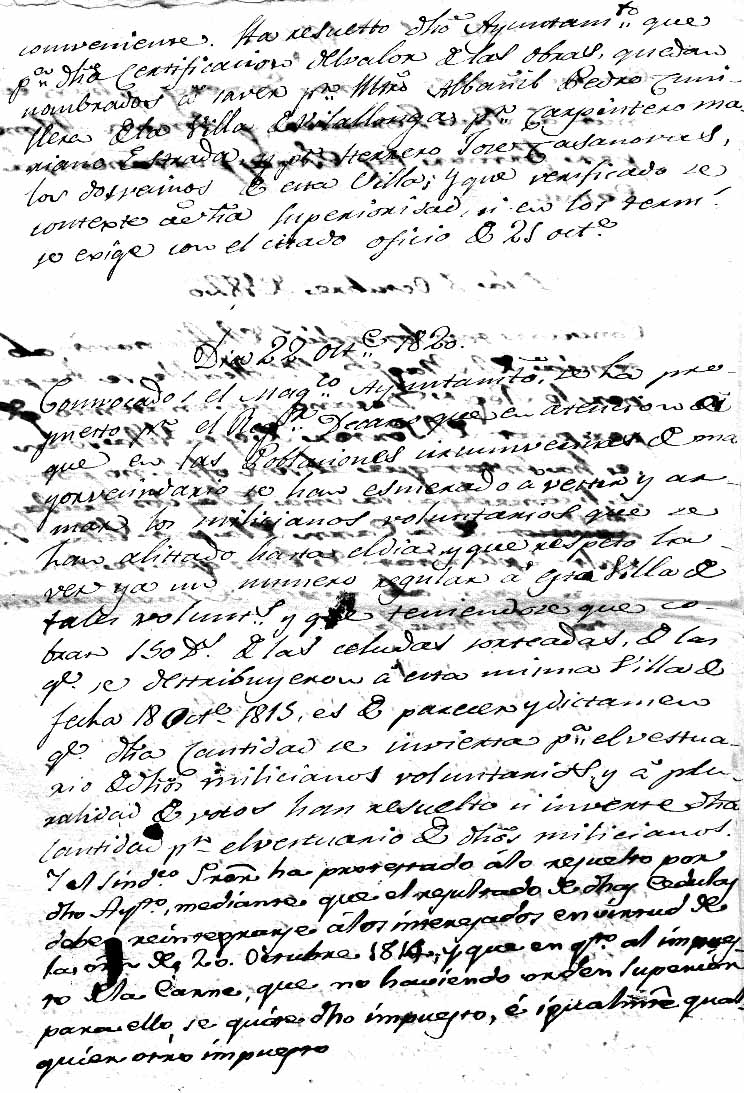 conveniente. Ha resuelto dho. Ayuntamto. que
pa. dha. Certificacion del valor de las obras, quedan
nombrados á saver pr. Mtro. Albañil Pedro Cuni-
llera de la Villa de Vilallonga, pr. Carpintero ma-
riano Estrada, y pr. Herrero Jose Casanovas,
los dos vecinos de esta Villa; y que verificado se
conteste á dha. Superioridad, si en los term.s
se exige con el citado oficio de 25 octe.
Dia 22 Octe. 1820.
Convocados el Magco. Ayuntamto. se ha pro-
puesto pr. el Regr. Decano que en atencion á
que en las Poblaciones circunvecinas de ma
yor vecindario se han esmerado á vestir y ar-
mar los milicianos voluntarios que se
han alistado hasta el dia, y que respeto ha-
ver ya un numero regular á esta Villa de
tales volunts. y que teniendose que co-
brar 150 Ds. de las cedulas sorteadas, de las
qe. se destribuyeron á esta misma Villa de
fecha 18 Octe. 1815, es de parecer y dictamen
qe. dha Cantidad se invierta pa. el vestua-
rio de dhos. milicianos voluntarios, y á plu-
ralidad de votos han resuelto si invierte dha
Cantidad pa. el vestuario de dhos. milicianos.
Y el Sindco. Pror. ha protestado á lo resuelto por
dho Aytto., mediante que el resultado de dhas Cedulas
debe reintegrarse á los interesados en virtud de
la orn. de 20. Octubre 1814, y que en qto. al impues-
to de la Carne, que no haviendo orden Superior
para ello, se quite dho impuesto, é igualmte. qual-
quier otro impuesto